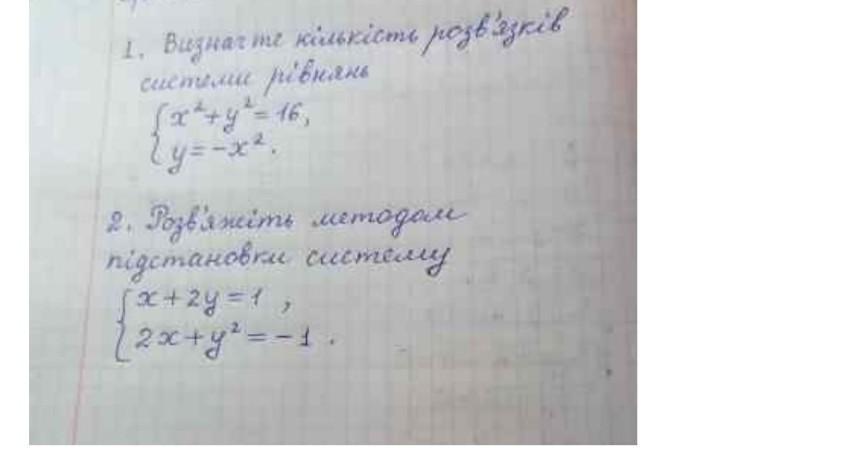 1. Визначте кількість розв'язків
системи рівнянь
{x²+y²=16,
{y=-x².
2. Розв'яжіть методом
підстановки систему
{x+2y=1,
{2x+y²=-1.